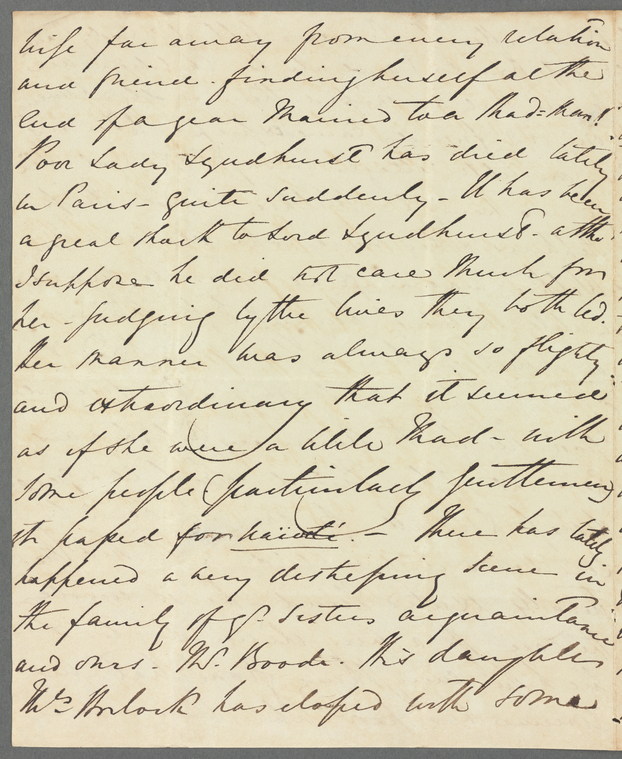 wife far away from every relation
and friend. finding herself at the
End of a year Married to a Mad=Man!
Poor Lady Lyndhurst has died lately
in Paris - quite suddenly - It has been
a great shock to Lord Lyndhurst - altho
I suppose he did not care Much for
her - Judging by the lives they both led.
Her Manner was always so flighty
and extraordinary that it seemed
as if she were a little Mad - with
some people (particularly Gentlemen)
it passed for naïveté. - There has lately
happened a very distressing Scene in
the family of yr. Sisters acquaintance
and ours - Mr. Boode. His daughter
Mrs has eloped with some